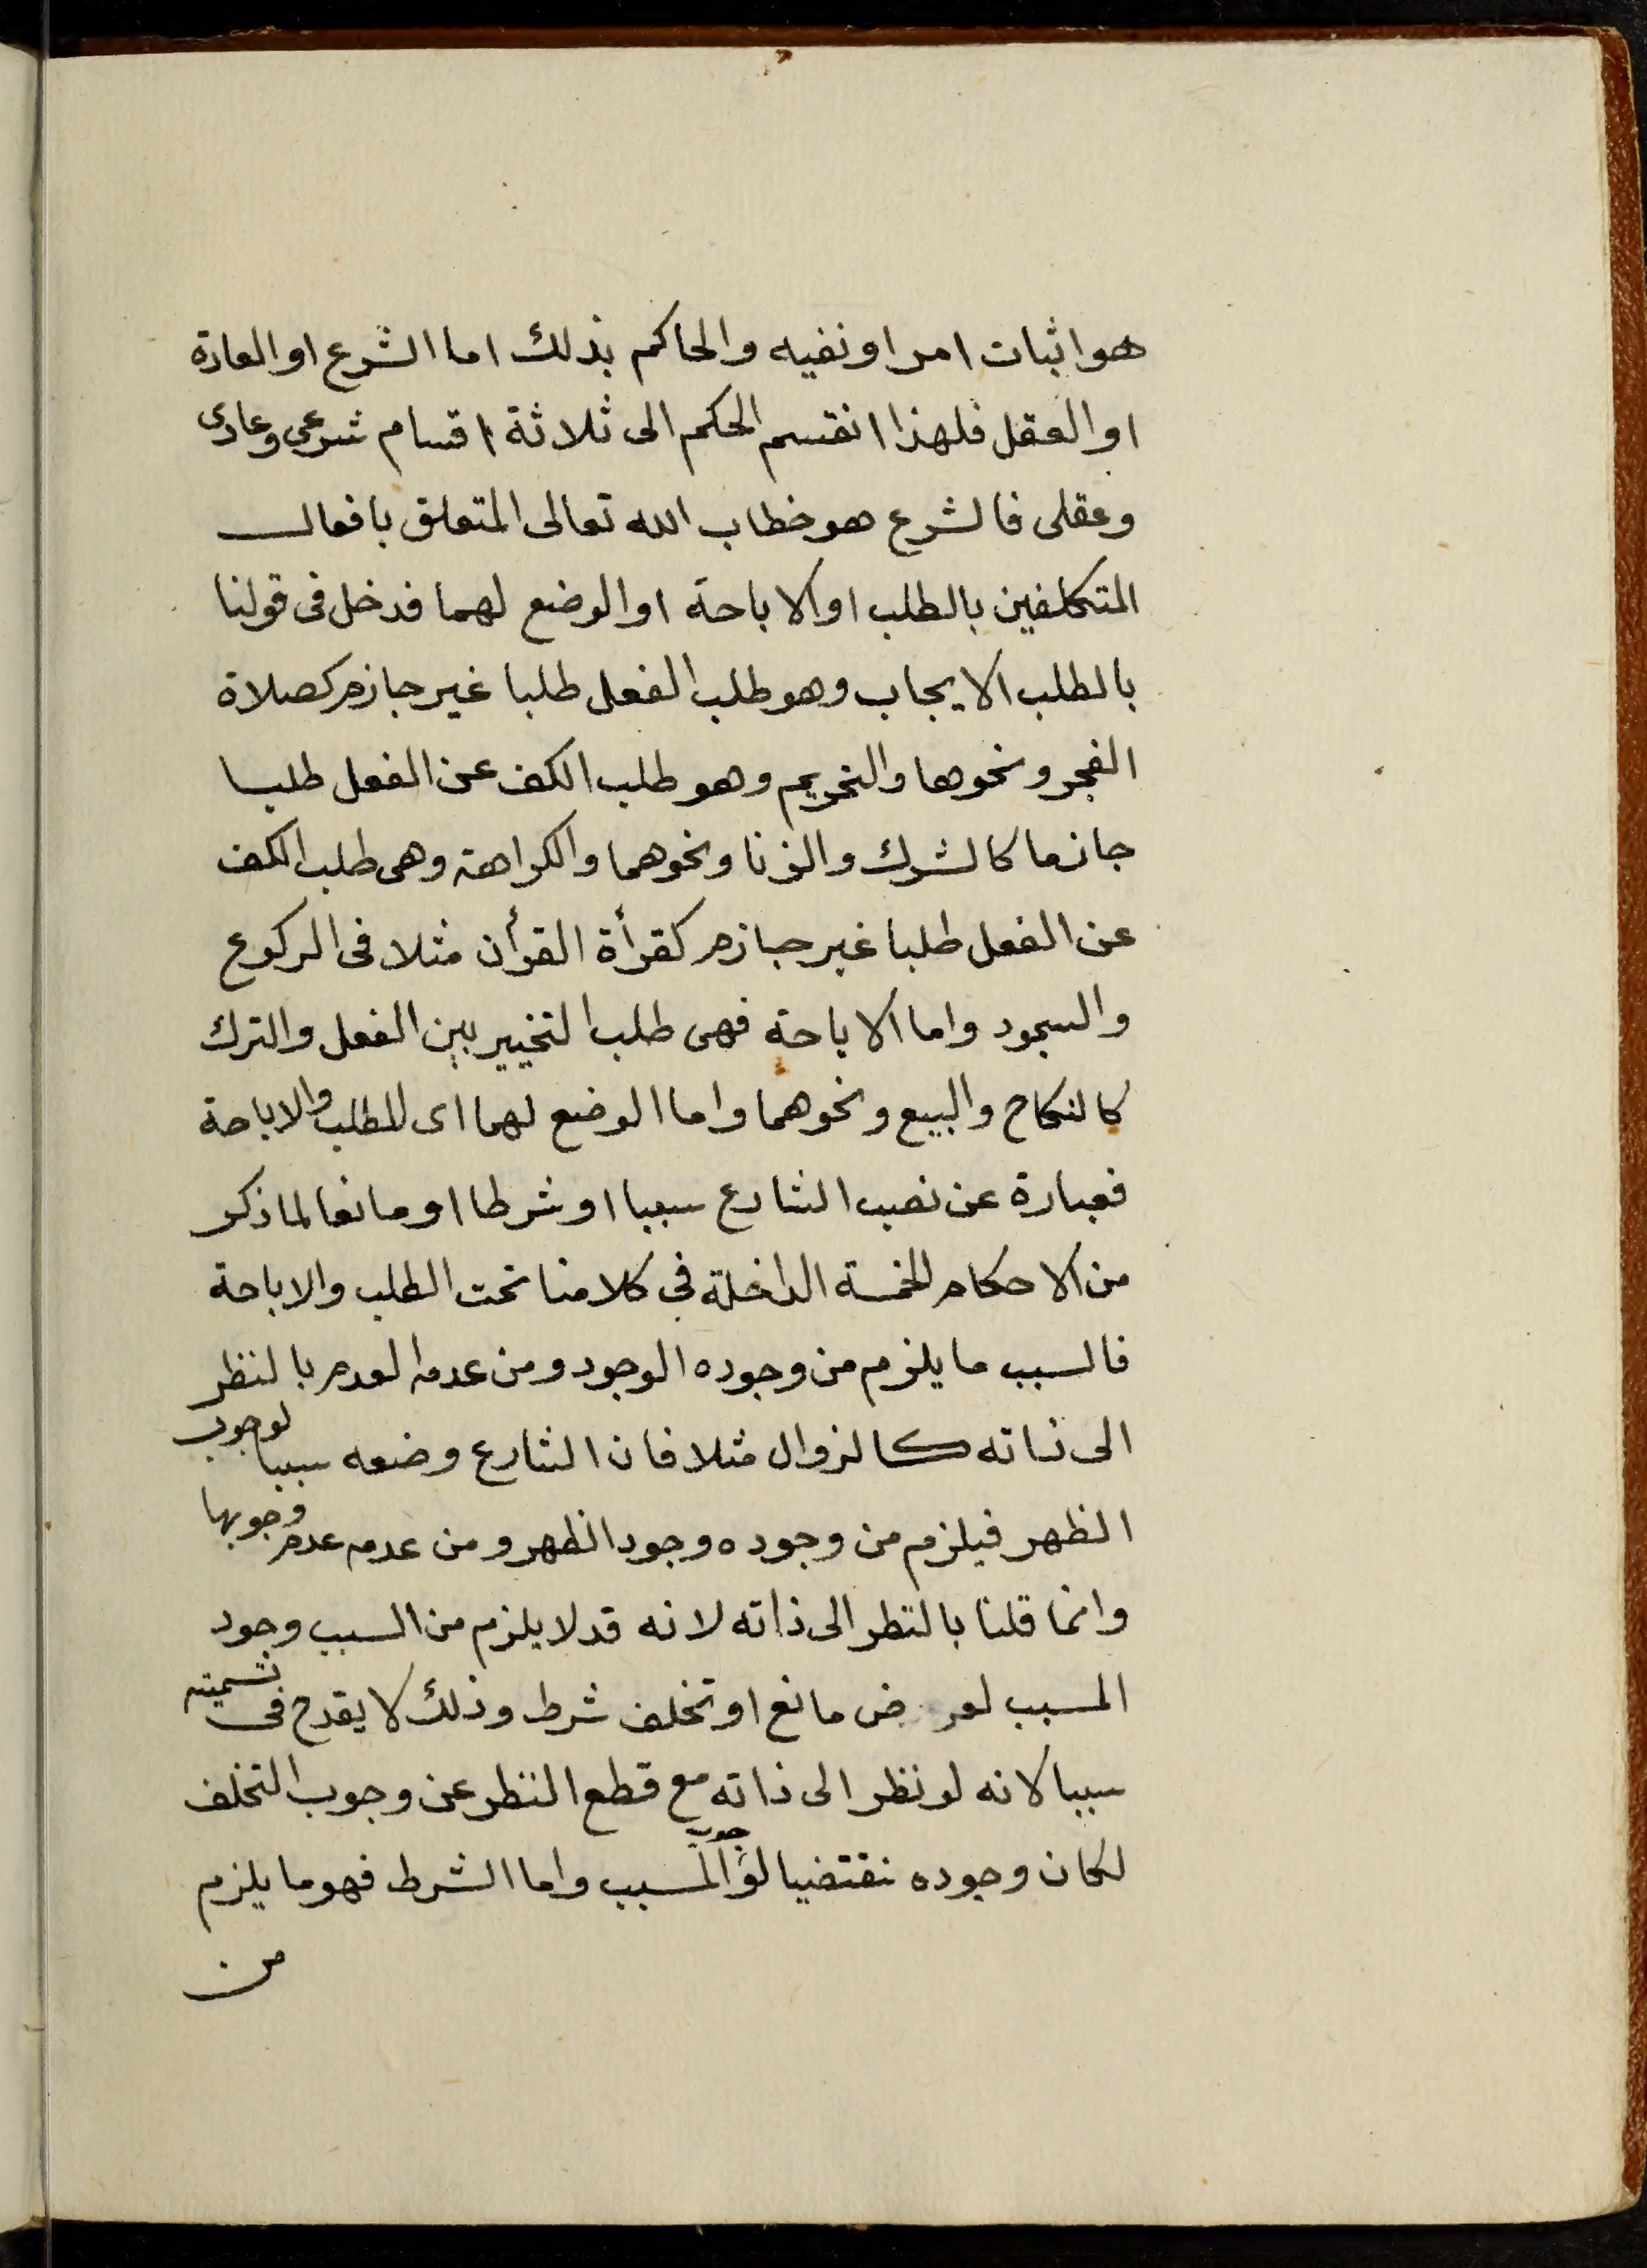 هو اثبات امر او نفيه والحاكم بذلك اما الشرع او العادة
او العقل فلهذا انقسم الحكم الى ثلاثة اقسام شرعى وعادى
وعقلى فالشرع هو خطاب الله تعالى المتعلق بافعال
المتكلفين بالطلب او الاباحة او الوضع لهما فدخل فى قولنا
بالطلب الايجاب وهو طلب الفعل طلبا غير جازم كصلاة
الفجر ونحوها والتحريم وهو طلب الكف عن الفعل طلبا
جازما كالشرك والزنا ونحوهما والكراهة وهى طلب الكف
عن الفعل طلبا غير جازم كقرأة القرأن مثلا فى الركوع
والسجود واما الاباحة فهى طلب التخيير بين الفعل والترك
كالنكاح والبيع ونحوهما واما الوضع لهما اى للطلب والاباحة
فعبارة عن نصب الشارع سببا او شرطا او مانعا لما ذكر
من الاحكام الخمسة الداخلة في كلامنا تحت الطلب والاباحة
فالسبب ما يلزم من وجوده الوجود ومن عدمه العدم بالنظر
الى ذاته كالزوال مثلا فان الشارع وضعه سببا لوجوب
الظهر فيلزم من وجوده وجود الظهر ومن عدمه عدم وجوبها
وانما قلنا بالنظر الى ذاته لانه قد لا يلزم من السبب وجود
المسبب لعروض مانع او تخلف شرط وذلك لا يقدح فى تسميته
سببا لانه لو نظر الى ذاته مع قطع النظر عن وجوب التخلف
لكان وجوده نقتضيا لوجوب المسبب واما الشرط فهو ما يلزم
من